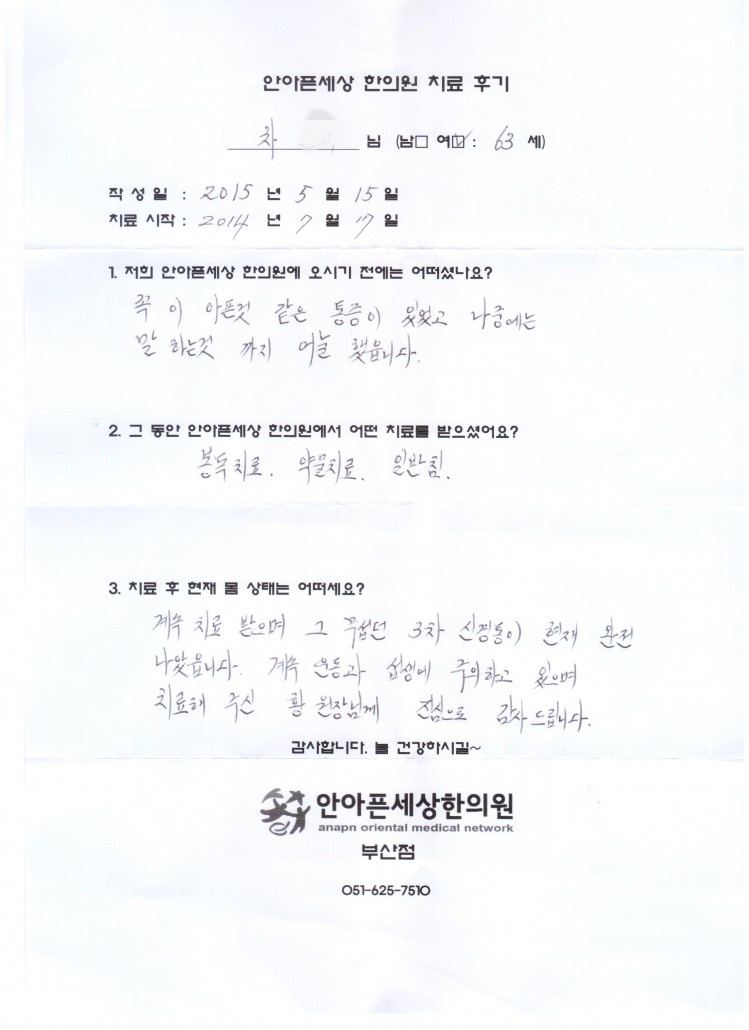 안아픈세상 한의원 치료 후기
차 님 (남□ 여☑: 63 세)
작 성 일 : 2015 년 5 월 15 일
치료 시작 : 2014 년 7 월 17 일
1. 저희 안아픈세상 한의원에 오시기 전에는 어떠셨나요?
꼭 이 아픈것 같은 통증이 있었고 나중에는
말 하는것 까지 어눌 했읍니다.
2. 그 동안 안아픈세상 한의원에서 어떤 치료를 받으셨어요?
봉독치료. 약물치료. 일반침.
3. 치료 후 현재 몸 상태는 어떠세요?
계속 치료 받으며 그 무섭던 3차 신경통이 현재 완전
나았읍니다. 계속 운동과 섭생에 주의하고 있으며
치료해 주신 황 원장님께 진심으로 감사 드립니다.
감사합니다. 늘 건강하시길~
안아픈세상한의원
anapn oriental medical network
부산점
051-625-7510